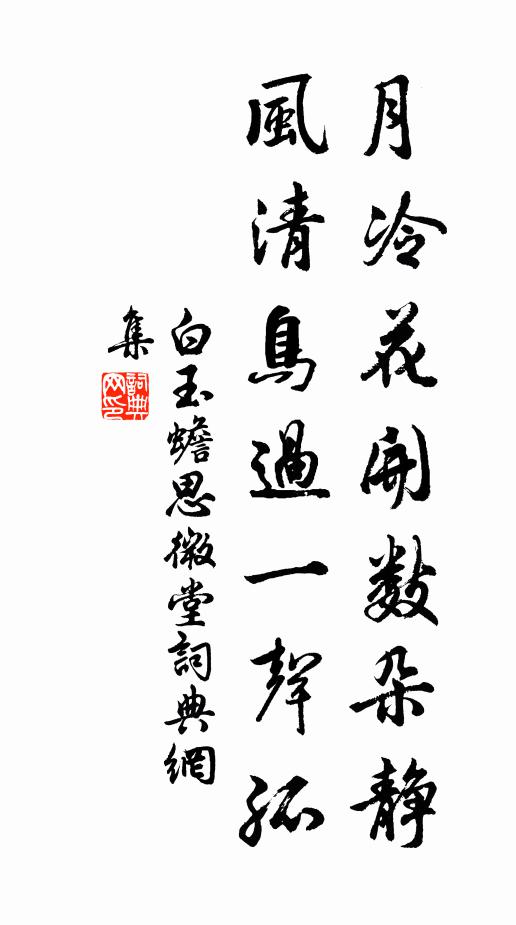 月冷花開數朵靜
風清鳥過一聲孤
白玉蟾思微堂詞典網
集
詞典網印